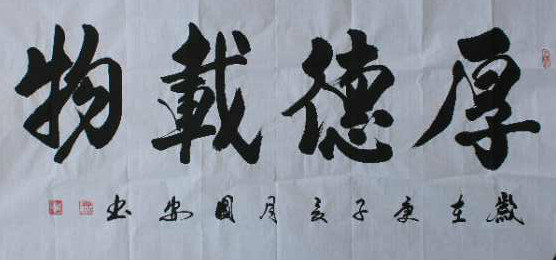 厚德載物
歲在庚子亥月國安书